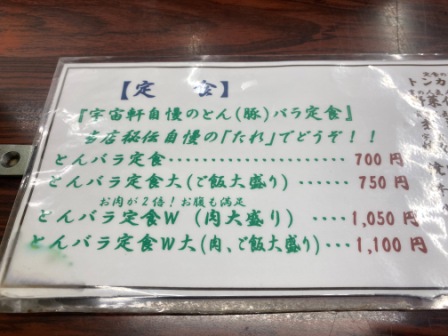 【定 食】
『宇宙軒自慢のとん(豚)バラ定食』
当店秘伝自慢の「たれ」でどうぞ!!
とんバラ定食・・・・・・・・・・・・・・・・・・・・・700円
とんバラ定食大(ご飯大盛り)・・・・・・750円
お肉が2倍!お腹も満足
とんバラ定食W (肉大盛り) ・・・・1,050円
とんバラ定食W大(肉、ご飯大盛り)・・・1,100円
トンカ